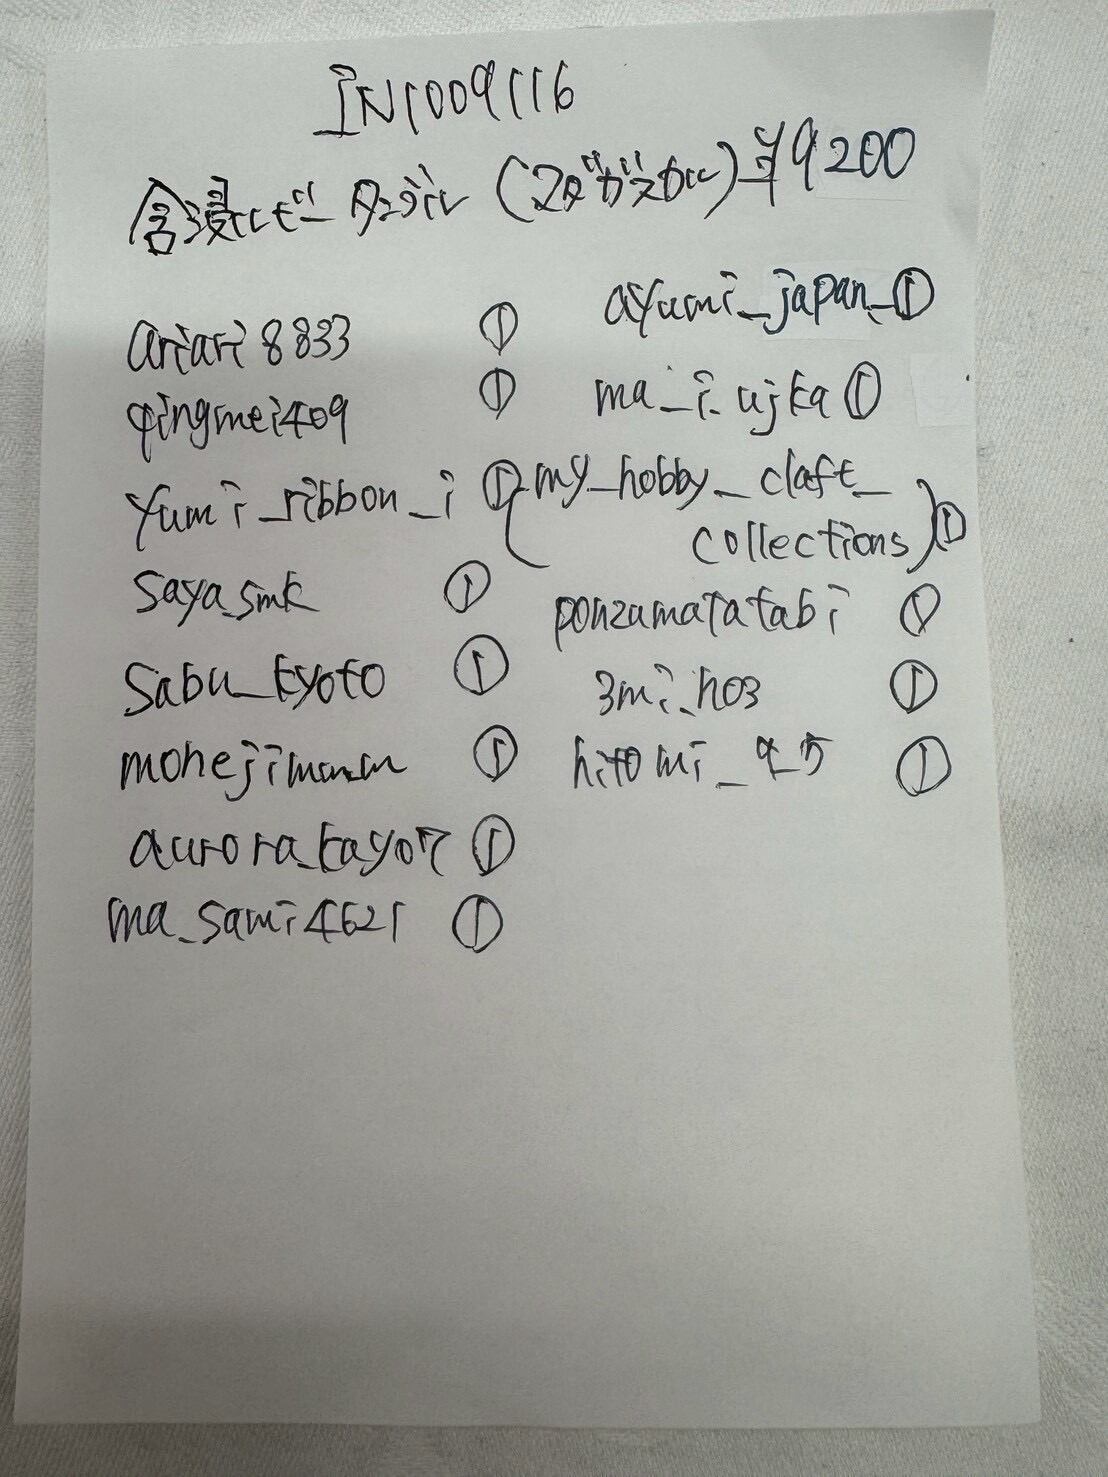 IN1009116
含浸ルビー タンブル (マダガスカル) ¥9200
ariari8833 ①
qingmei409 ①
yumi_ribbon_i ①
saya_smk ①
sabu_kyoto ①
mohejimman ①
aurora_kayo7 ①
ma_sami4621 ①
ayumi_japan_ ①
ma_i_ujka ①
(my_hobby_claft_
collections) ①
ponzamatatabi ①
3mi_ho3 ①
hitomi_9_5 ①